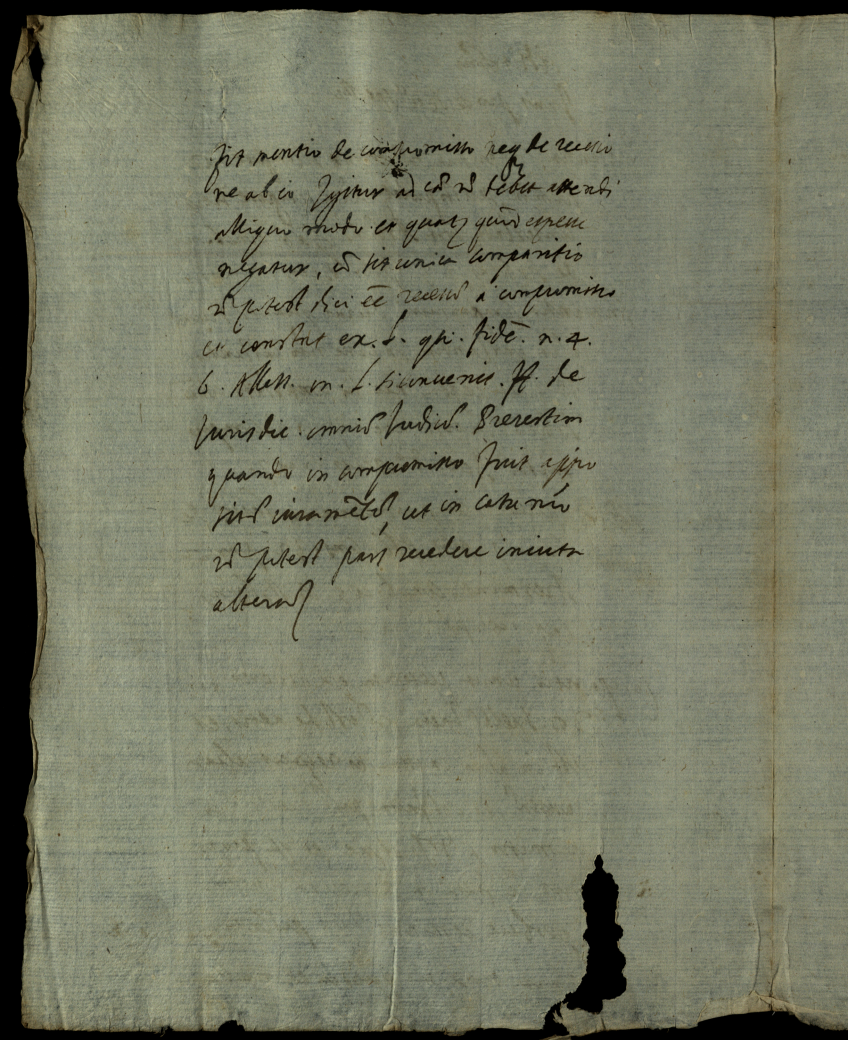 fit mentio de compromisso neq de recessu
ne ab eo Igitur ad eū nō debet attendi
aliquo modo et quatz
negatur, cū sit unica comparitio
nō potest dici eē recessū a compromisso
ut constat ex. L. qui. fidē. n. 4.
6. Alex. in. L. si convenit. ff. de
Jurisdic. omniū Judicū. Prezertim
quando in compromisso fuit appo
sitū iuramētū, ut in casu nrō
nō potest pars recedere invita
altera